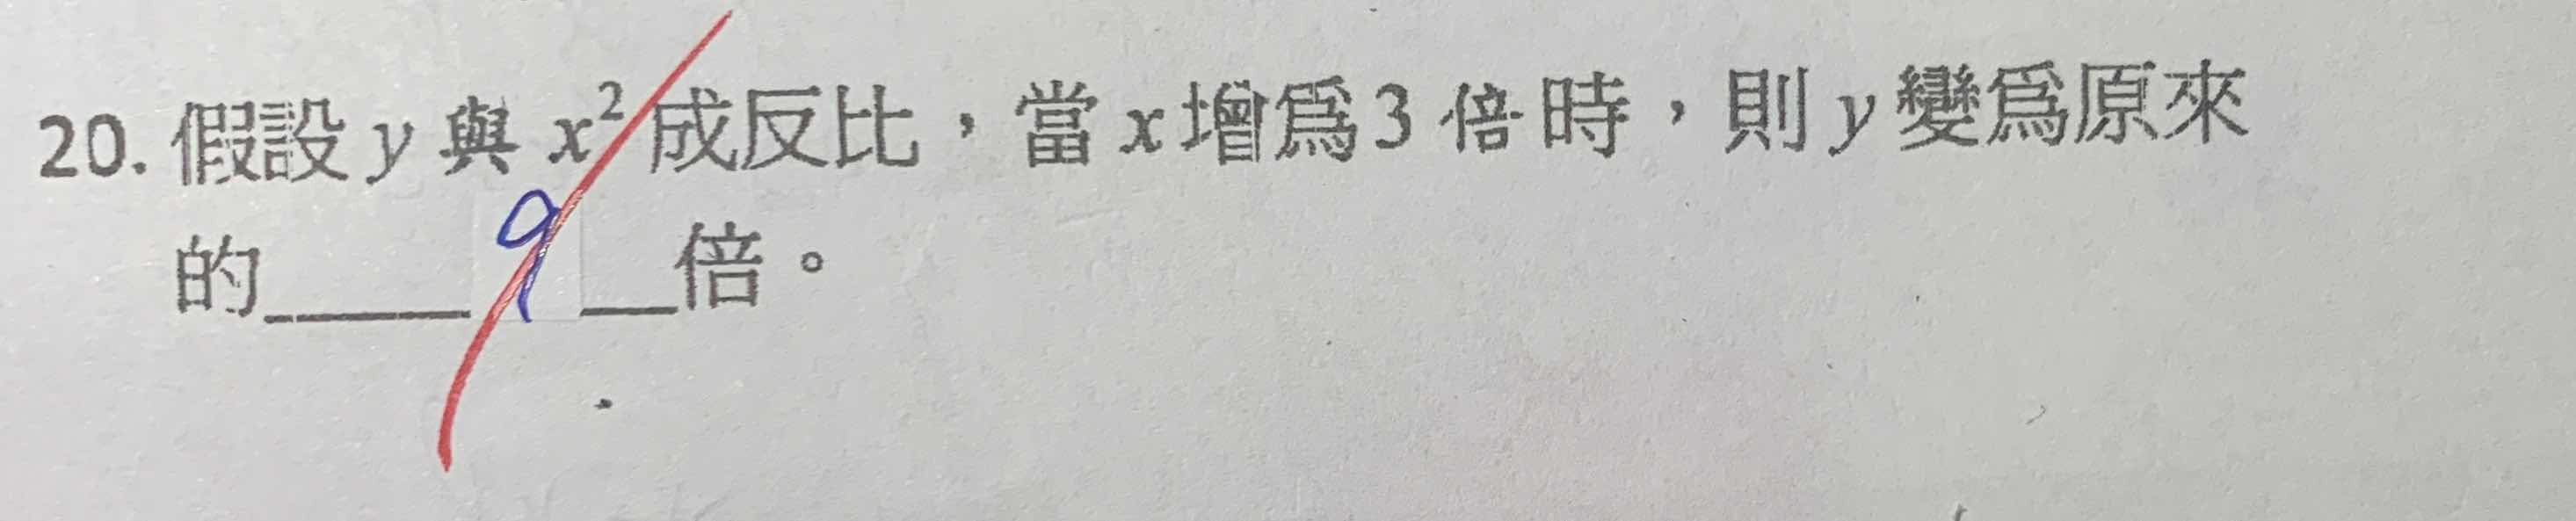 20. 假設 y 與 x² 成反比，當 x 增為 3 倍時，則 y 變為原來
的______9___倍。